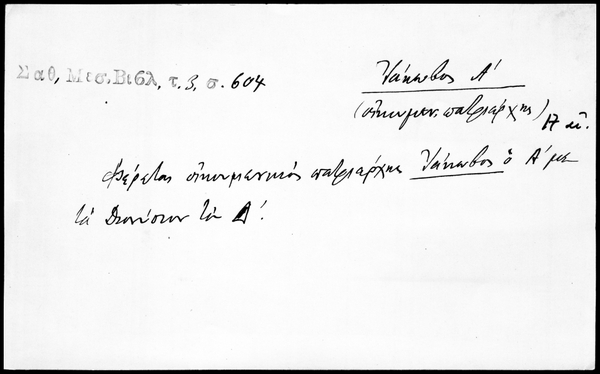 Σαθ, Μεσ. Βιβλ, τ. 3, σ. 604
Ἰάκωβος Α'
(οἰκουμεν. πατριάρχης)
17 αἰ.
Φέρεται οἰκουμενικός πατριάρχης Ἰάκωβος ὁ Α' με
τά Διονύσιον τόν Δ'.